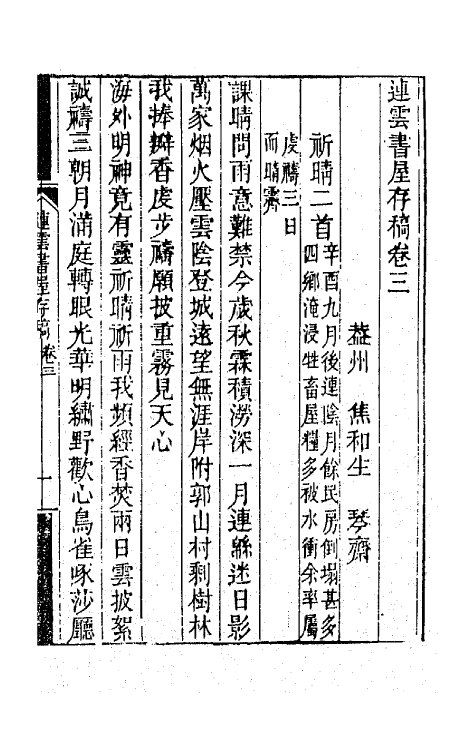 連雲書屋存稿卷三
益州　焦和生　琴齋
祈晴二首辛酉九月後連陰月餘民房倒塌甚多
四鄉淹浸牲畜屋糧多被水衝余率屬
虔禱三日
而晴霽
課晴問雨意難禁今歲秋霖積澇深一月連緜迷日影
萬家烟火壓雲陰登城遠望無涯岸附郭山村剩樹林
我捧瓣香虔步禱願披重霧見天心
海外明神竟有靈祈晴祈雨我頻經香焚兩日雲披絮
誠禱三朝月滿庭轉眼光華明繡野歡心鳥雀啄莎廳
連雲書屋存稿　卷三　一